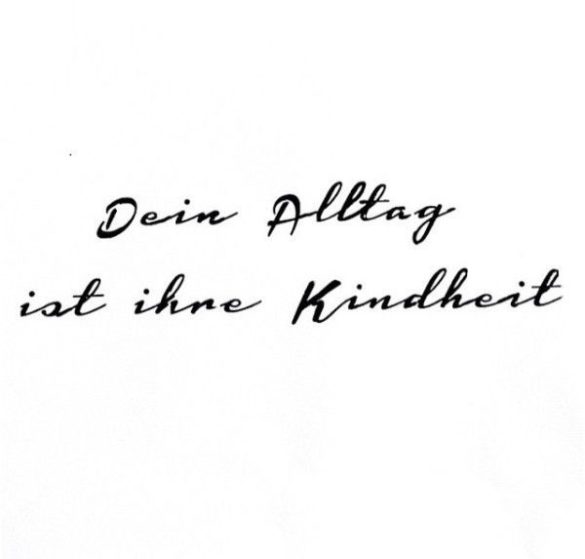 Dein Alltag
ist ihre Kindheit